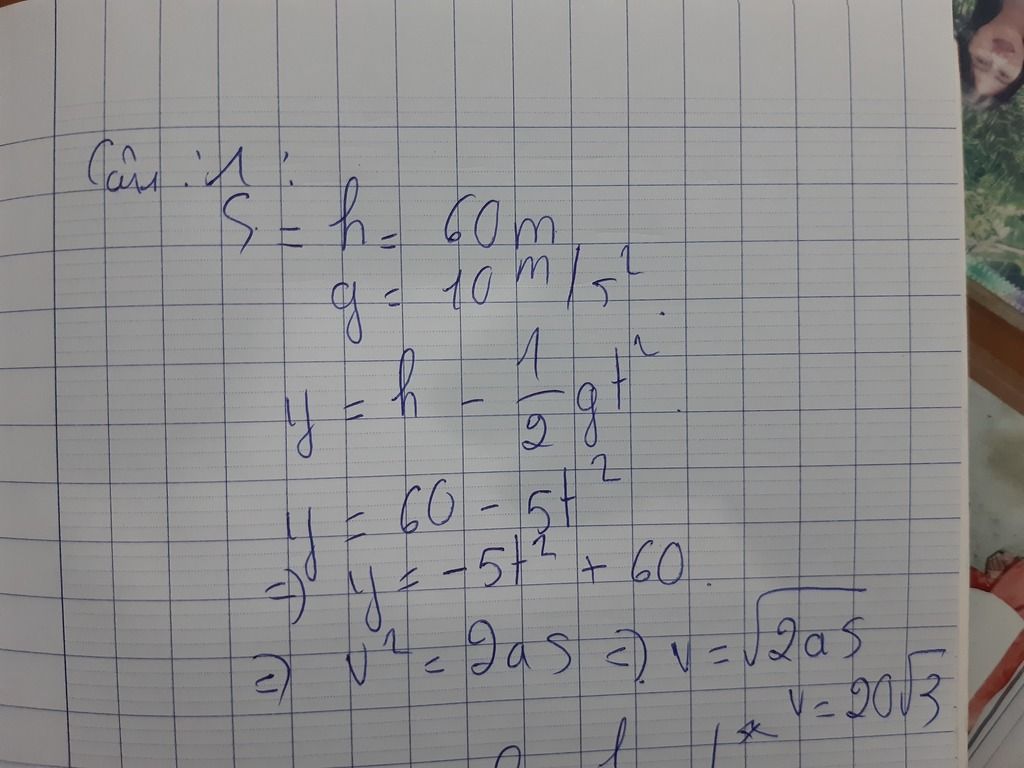 Câu : 1 :
S = h = 60 m
g = 10 m/s²
y = h - 1/2 gt².
y = 60 - 5t²
=> y = -5t² + 60.
=> v² = 2as => v = √2as
v = 20√3